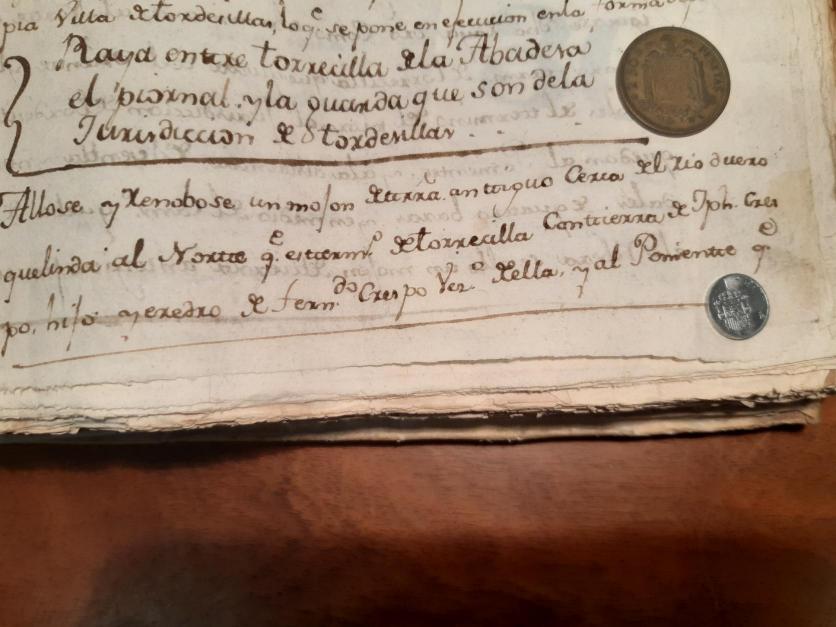 pia Villa de tordesillas, lo q.e se pone en execucion en la forma
Raya entre torrecilla de la Abadesa,
el piornal, y la guarda que son de la
Jurisdiccion de tordesillas.
Allose y Renobose un mojon de tierra antiguo Cerca del rio duero
que linda al Norte q.e es term.o de torrecilla Con tierra de Jph. Cres
po, hijo y eredro de Fern.do Crespo Vez.o della, y al Poniente q.e